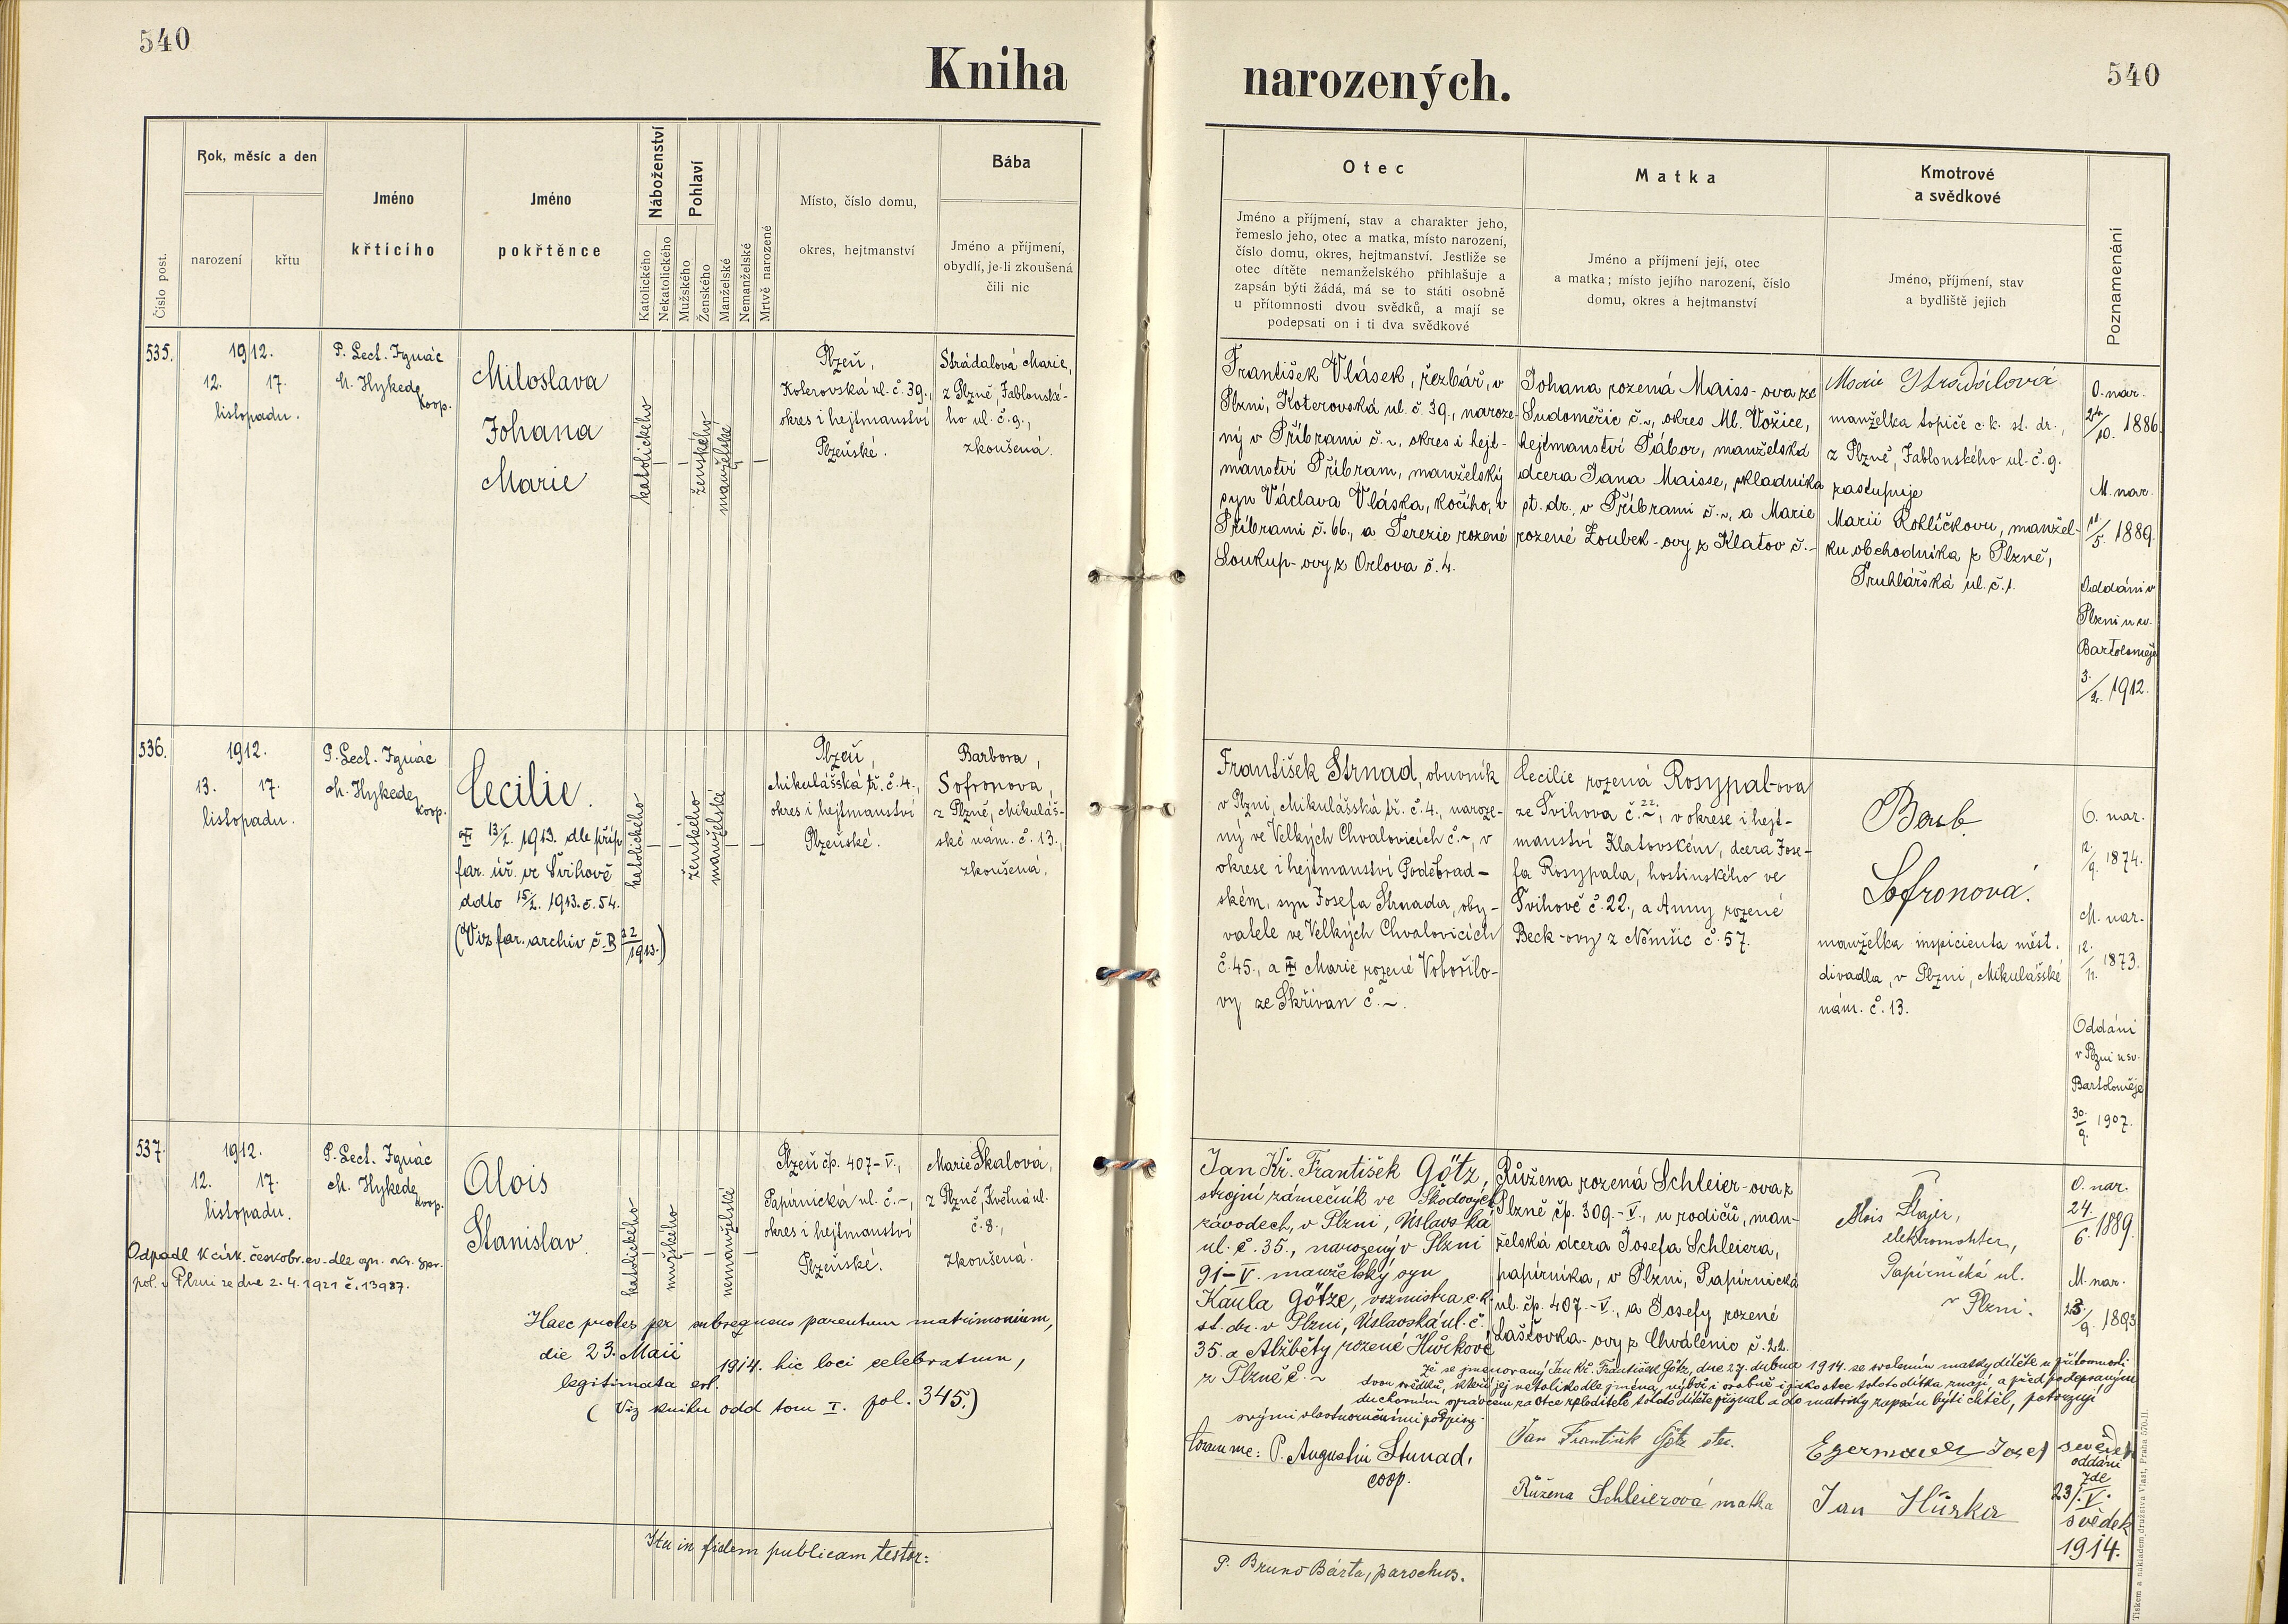 540
Kniha
narozených.
540
Číslo post.
Rok, měsíc a den
narození
křtu
Jméno
křtícího
Jméno
pokřtěnce
Náboženství
Katolického
Nekatolického
Pohlaví
Mužského
Ženského
Manželské
Nemanželské
Mrtvě narozené
Místo, číslo domu,
okres, hejtmanství
Bába
Jméno a příjmení,
obydlí, je-li zkoušená
čili nic
Otec
Jméno a příjmení, stav a charakter jeho,
řemeslo jeho, otec a matka, místo narození,
číslo domu, okres, hejtmanství. Jestliže se
otec dítěte nemanželského přihlašuje a
zapsán býti žádá, má se to státi osobně
u přítomnosti dvou svědků, a mají se
podepsati on i ti dva svědkové
Matka
Jméno a příjmení její, otec
a matka; místo jejího narození, číslo
domu, okres a hejtmanství
Kmotrové
a svědkové
Jméno, příjmení, stav
a bydliště jejich
Poznamenání
535.
1912.
12. 17.
listopadu.
P. Lect. Ignác
M. Hykede
koop.
Miloslava
Johana
Marie
katolického
ženského
manželské
Plzeň,
Koterovská ul. č. 39.,
okres i hejtmanství
Plzeňské.
Strádalová Marie,
z Plzně, Jablonské-
ho ul. č. 9.,
zkoušená.
František Vlásek, řezbář, v
Plzni, Koterovská ul. č. 39., naroze-
ný v Příbrami č. ~, okres i hejt-
manství Příbram, manželský
syn Václava Vláska, kočího, v
Příbrami č. 66., a Terezie rozené
Loukup-ovy z Orlova č. 4.
Johana rozená Maiss-ova ze
Sudoměřic č. ~, okres Ml. Vožice,
hejtmanství Tábor, manželská
dcera Jana Maisse, skladníka
st. dr., v Příbrami č. ~, a Marie
rozené Zoubek-ovy z Klatov č. -
Marie Strádalová
manželka topiče c. k. st. dr.,
z Plzně, Jablonského ul. č. 9.
zastupuje
Marii Rohlíčkovu, manžel-
ku obchodníka z Plzně,
Truhlářská ul. č. 1.
O. nar.
24/10. 1886.
M. nar.
11/5. 1889.
Oddáni v
Plzni u sv.
Bartoloměje
3./2. 1912.
536.
1912.
13. 17.
listopadu.
P. Lect. Ignác
M. Hykede
koop.
Cecilie.
13/2. 1913. dle příp.
far. úř. ve Švihově
ddto 15/2. 1913. č. 54.
(Viz far. archiv č. B 22/1913.)
katolického
ženského
manželské
Plzeň,
Mikulášská tř. č. 4.,
okres i hejtmanství
Plzeňské.
Barbora,
Sofronova,
z Plzně, Mikuláš-
ské nám. č. 13.,
zkoušená.
František Strnad, obuvník
v Plzni, Mikulášská tř. č. 4., naroze-
ný ve Velkých Chvalovicích č. ~, v
okrese i hejtmanství Poděbrad-
ském, syn Josefa Strnada, oby-
vatele ve Velkých Chvalovicích
č. 45., a Marie rozené Vobořilo-
vy ze Skřivan č. ~.
Cecilie rozená Rosypal-ova
ze Švihova č. 22., v okrese i hejt-
manství Klatovském, dcera Jose-
fa Rosypala, hostinského ve
Švihově č. 22., a Anny rozené
Beck-ovy z Němčic č. 57.
Barb.
Sofronová.
manželka inspicienta měst.
divadla, v Plzni, Mikulášské
nám. č. 13.
O. nar.
12./9. 1874.
M. nar.
12./11. 1873.
Oddáni
v Plzni u sv.
Bartoloměje
30./9. 1907.
537.
1912.
12. 17.
listopadu.
P. Lect. Ignác
M. Hykede
koop.
Alois
Stanislav
katolického
mužského
nemanželské
Plzeň čp. 407-V.,
Papírnická ul. č. -,
okres i hejtmanství
Plzeňské.
Marie Skalová,
z Plzně, Květná ul.
č. 8.,
zkoušená.
Odpadl k církvi českobr. ev. dle op. okr. spr.
pol. v Plzni ze dne 2. 4. 1921 č. 13987.
Haec proles per subsequens parentum matrimonium,
die 23. Maii 1914. hic loci celebratum,
legitimata est.
(Viz knihu odd tom I. pol. 345.)
Jan Kř. František Götz,
strojní zámečník ve Škodových
závodech, v Plzni, Úslavská
ul. č. 35., narozený v Plzni
91-V. manželský syn
Karla Götze, vozmistra c. k.
st. dr. v Plzni, Úslavská ul. č.
35. a Alžběty rozené Hůrkové
z Plzně č. ~
Růžena rozená Schleier-ova z
Plzně čp. 309.-V., u rodičů, man-
želská dcera Josefa Schleiera,
papírníka, v Plzni, Papírnická
ul. čp. 407.-V., a Josefy rozené
Laštovka-ovy z Chválenic č. 22.
Alois Štajer,
elektromontér,
Papírnická ul.
v Plzni.
O. nar.
24./6. 1889.
M. nar.
23./9. 1893
Že se jmenovaný Jan Kř. František Götz, dne 27. dubna 1914. se svolením matky dítěte u přítomnosti
dvou svědků, kteří jej netoliko dle jména, nýbrž i osobně i jako otce tohoto dítka znají, a před podepsaným
duchovním správcem za otce zploditele tohoto dítěte přiznal a do matriky zapsán býti chtěl, potvrzují
svými vlastnoručními podpisy.
Coram me: P. Augustin Strnad,
coop.
Jan František Götz otec.
Růžena Schleierová matka
Egermaier Josef svědek
Jan Hůrka svědek
oddáni
zde
23/V.
1914.
Ita in fidem publicam testor:
P. Bruno Bárta, parochus.
Tiskem a nákladem družstva Vlast, Praha 570-II.